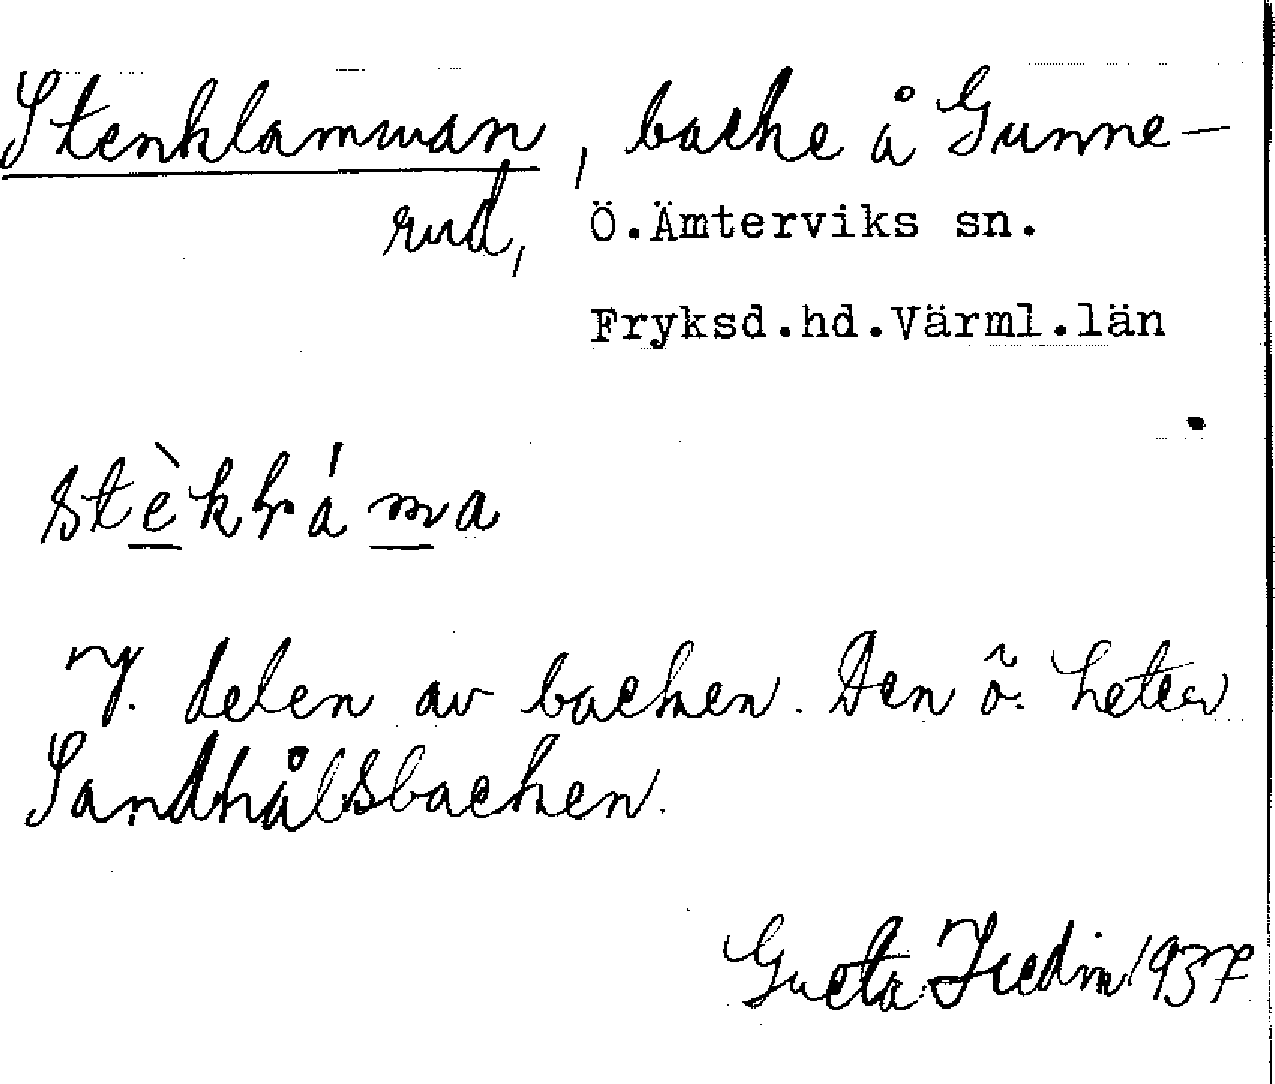 Stenklamman, backe å Gunne-
rud, Ö.Ämterviks sn.
Fryksd.hd.Värml.län
stèkháma
V. delen av backen. Den ö. heter
Sandhålsbacken.
Greta Hedin 1937